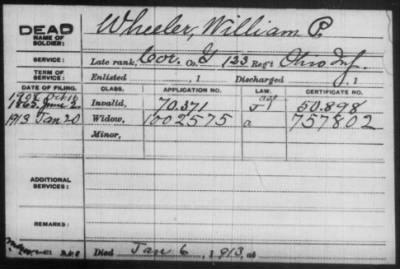 DEAD Wheeler, William P.
NAME OF
SOLDIER:
SERVICE: Late rank, Cor. Co. G 133 Reg't Ohio Inf.
TERM OF
SERVICE: Enlisted , 1 Discharged , 1
DATE OF FILING. CLASS. APPLICATION NO. LAW. CERTIFICATE NO.
1865 June 2 Invalid, 70.371 50.898
1913 Jan 20 Widow, 1002575 a 757802
Minor,
ADDITIONAL
SERVICES:
REMARKS:
Died Jan 6, 1913, at